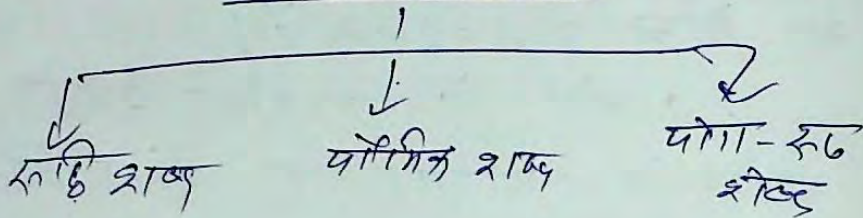 रूढ़ि शब्द यौगिक शब्द योग-रूढ
शब्द